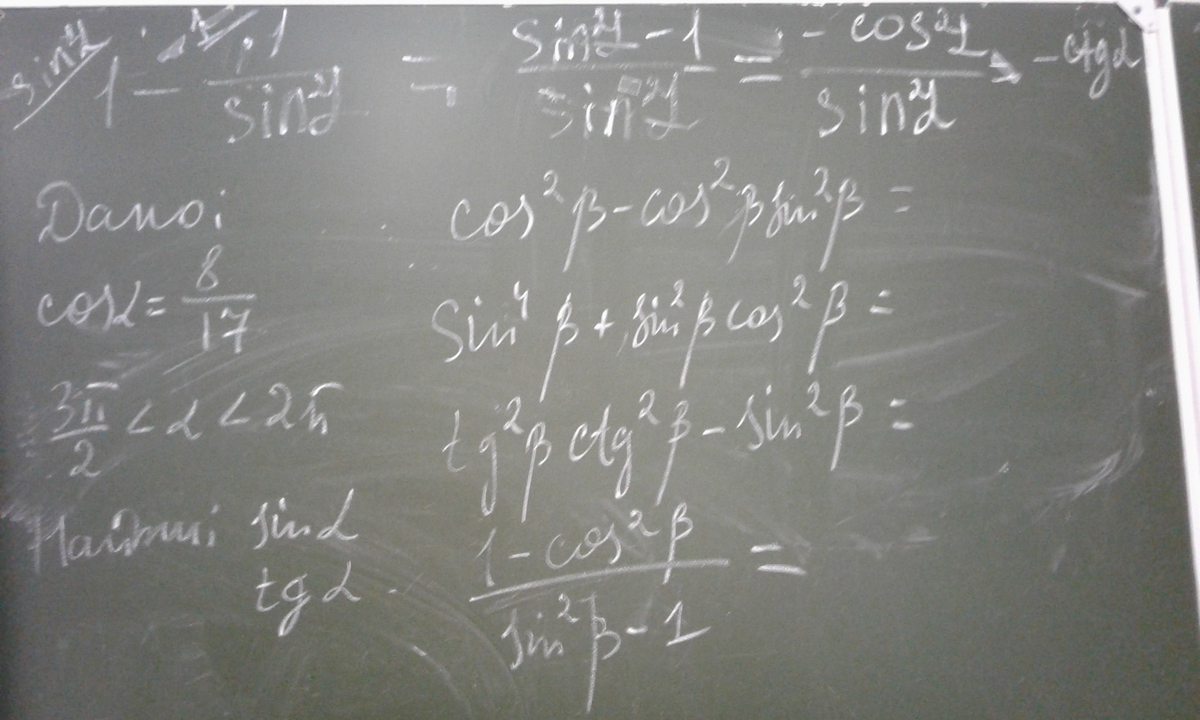 sin²α 1 - 1/sin²α = sin²α - 1/sin²α = - cos²α/sin²α = - ctgα
Дано:
cosα = 8/17
3π/2 < α < 2π
Найти: sinα
tgα
cos²β - cos²β sin²β =
sin⁴β + sin²β cos²β =
tg²β ctg²β - sin²β =
1 - cos²β/sin²β - 1 =